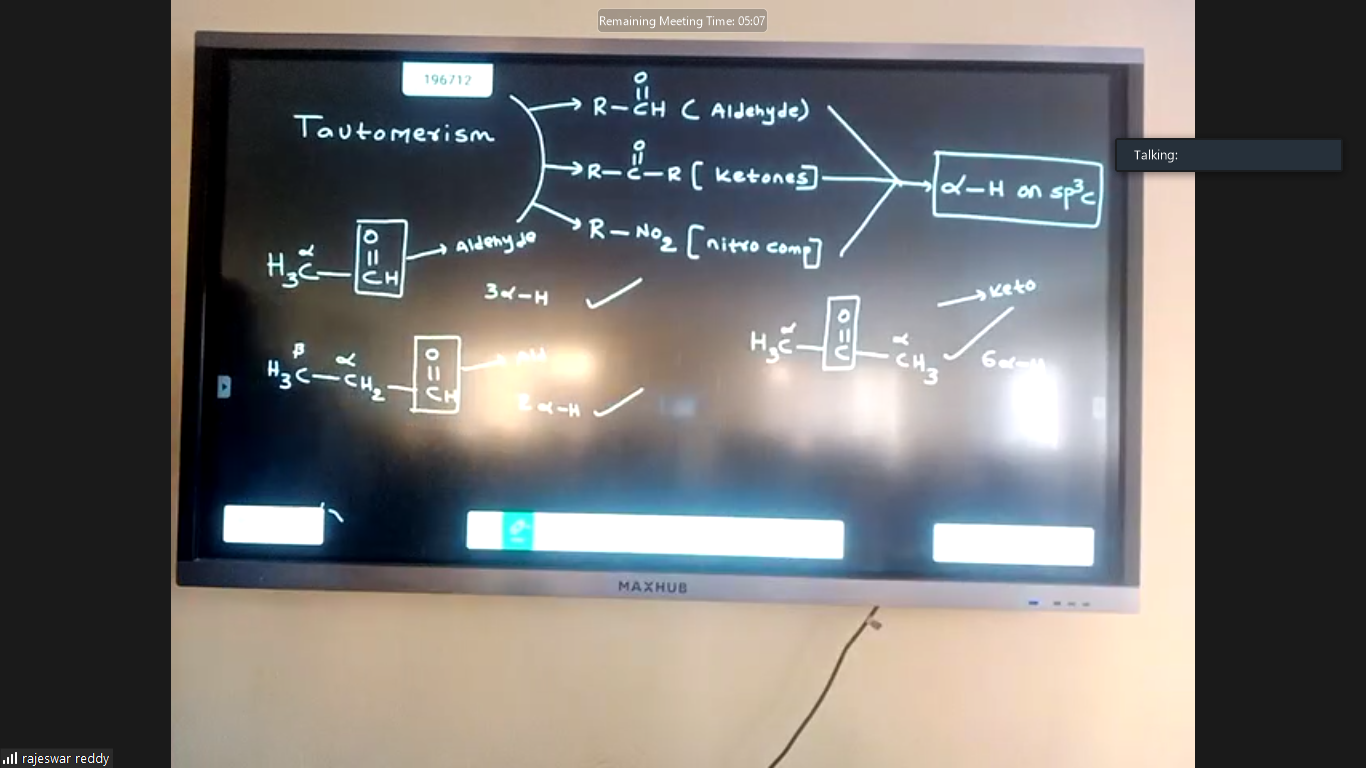 Remaining Meeting Time: 05:07
196712
Tautomerism
O
R-CH ( Aldehyde)
O
R-C-R [ ketones]
R-NO2 [nitro comp]
α-H on sp3c
Talking:
α O
H3C-CH → Aldehyde
3α-H
β α O
H3C-CH2-CH
2 α-H
α O α
H3C-C-CH3
→ Keto
6α-H
MAXHUB
rajeswar reddy